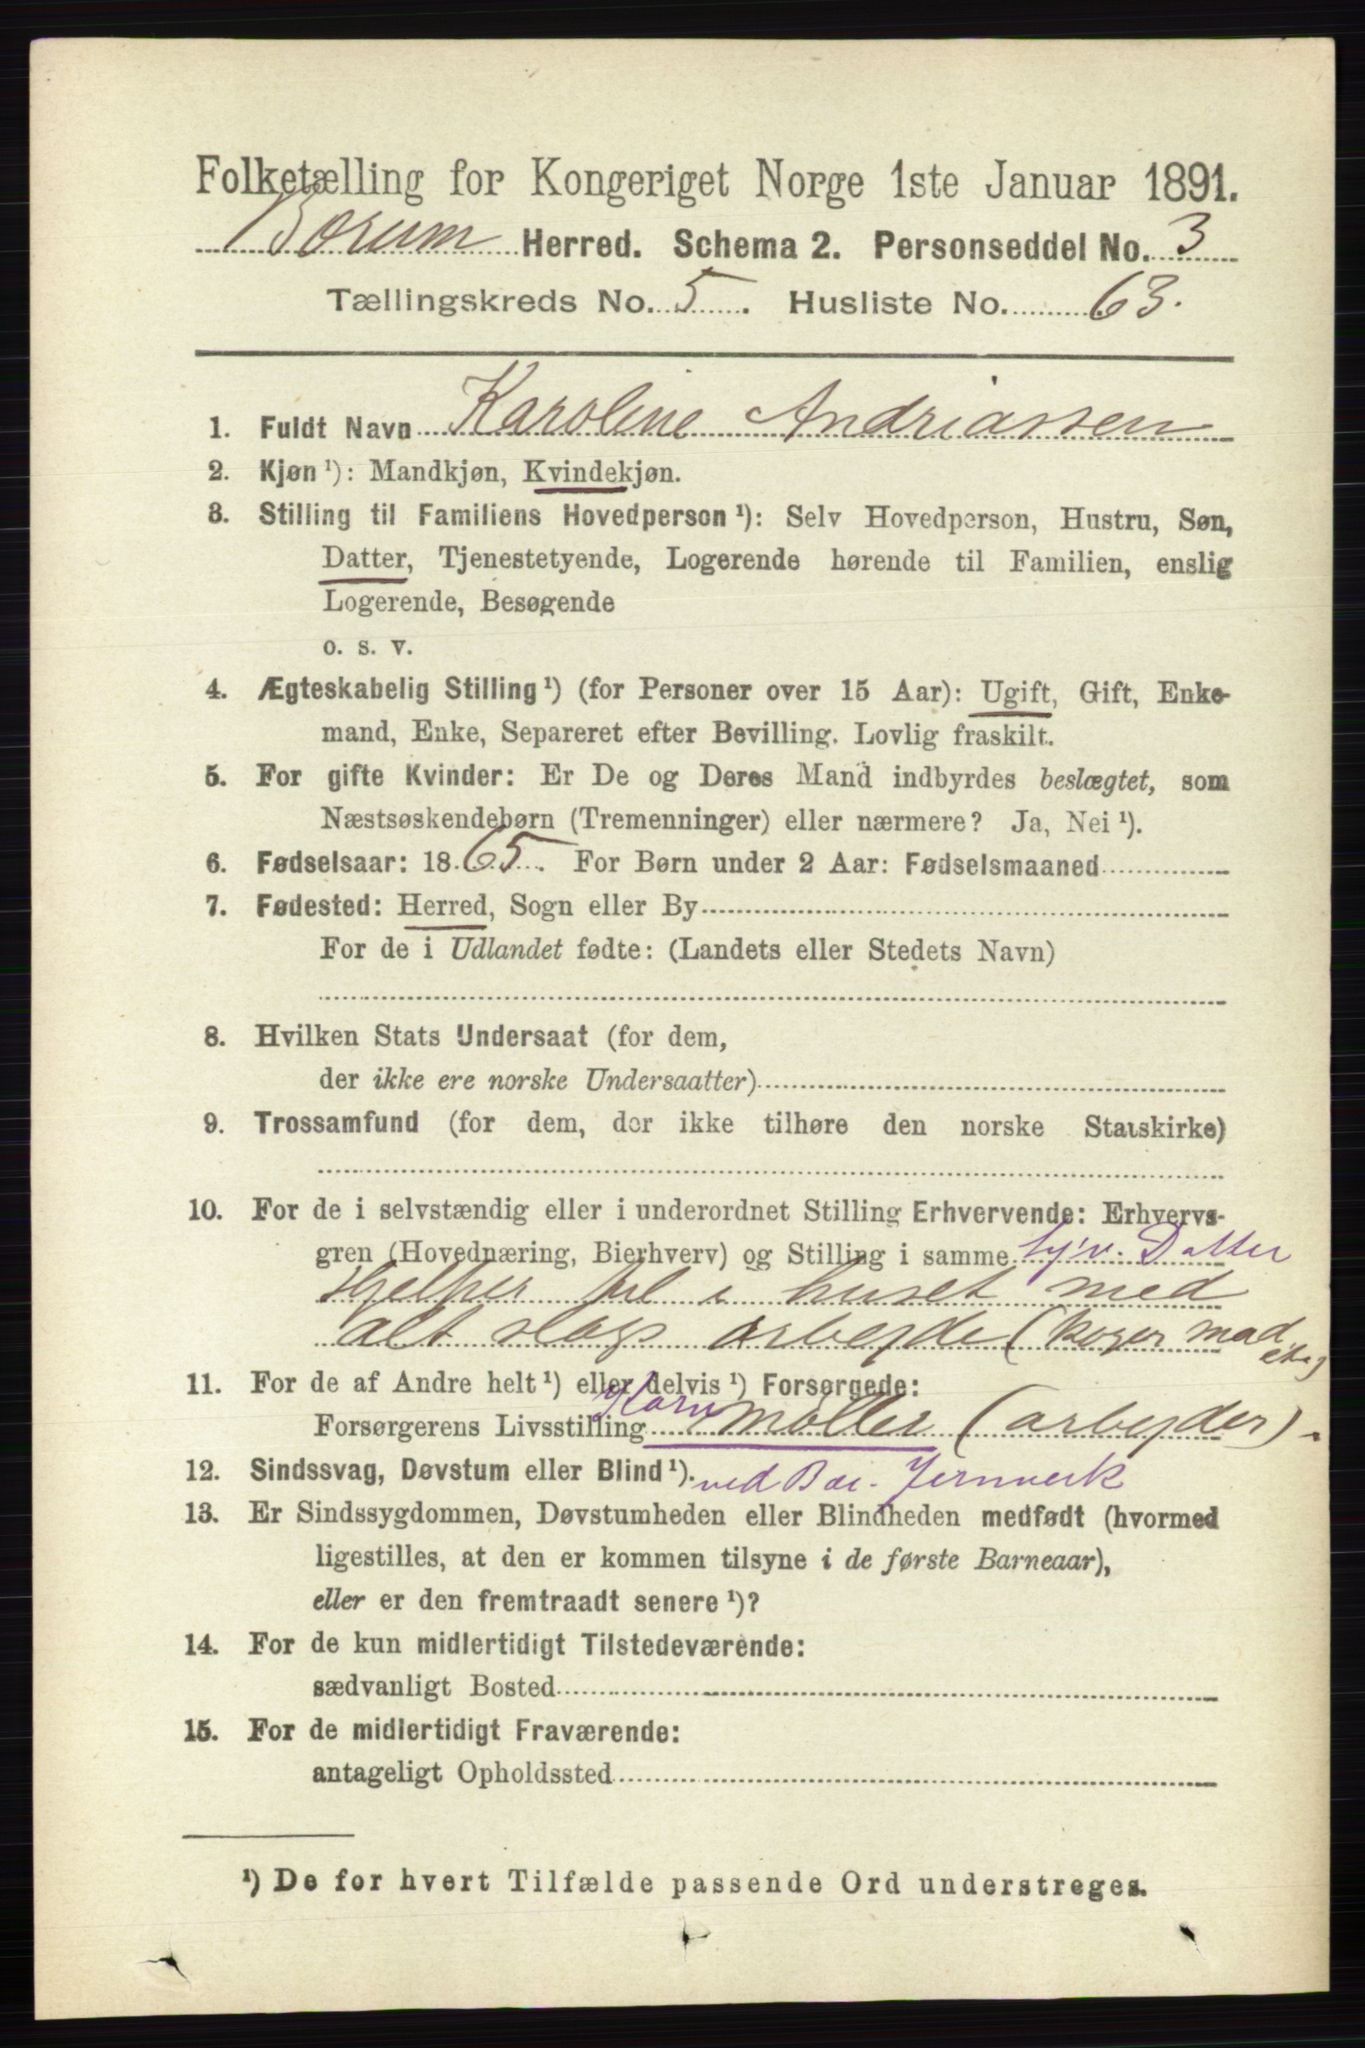 Folketælling for Kongeriget Norge 1ste Januar 1891.
Bærum Herred. Schema 2. Personseddel No. 3
Tællingskreds No. 5. Husliste No. 63.
1. Fuldt Navn Karoline Andriassen
2. Kjøn¹): Mandkjøn, Kvindekjøn.
3. Stilling til Familiens Hovedperson¹): Selv Hovedperson, Hustru, Søn,
Datter, Tjenestetyende, Logerende hørende til Familien, enslig
Logerende, Besøgende
o. s. v.
4. Ægteskabelig Stilling¹) (for Personer over 15 Aar): Ugift, Gift, Enke-
mand, Enke, Separeret efter Bevilling. Lovlig fraskilt.
5. For gifte Kvinder: Er De og Deres Mand indbyrdes beslægtet, som
Næstsøskendebørn (Tremenninger) eller nærmere? Ja, Nei¹).
6. Fødselsaar: 1865. For Børn under 2 Aar: Fødselsmaaned
7. Fødested: Herred, Sogn eller By
For de i Udlandet fødte: (Landets eller Stedets Navn)
8. Hvilken Stats Undersaat (for dem,
der ikke ere norske Undersaatter)
9. Trossamfund (for dem, der ikke tilhøre den norske Statskirke)
10. For de i selvstændig eller i underordnet Stilling Erhvervende: Erhvervs-
gren (Hovednæring, Bierhverv) og Stilling i samme hj.v. Datter
Hjelper til i huset med
alt slags arbejde (koger mad
etc)
11. For de af Andre helt¹) eller delvis¹) Forsørgede:
Forsørgerens Livsstilling Korn Møller (arbejder).
12. Sindssvag, Døvstum eller Blind¹). ved Bæ. Jernverk
13. Er Sindssygdommen, Døvstumheden eller Blindheden medfødt (hvormed
ligestilles, at den er kommen tilsyne i de første Barneaar),
eller er den fremtraadt senere¹)?
14. For de kun midlertidigt Tilstedeværende:
sædvanligt Bosted
15. For de midlertidigt Fraværende:
antageligt Opholdssted
¹) De for hvert Tilfælde passende Ord understreges.